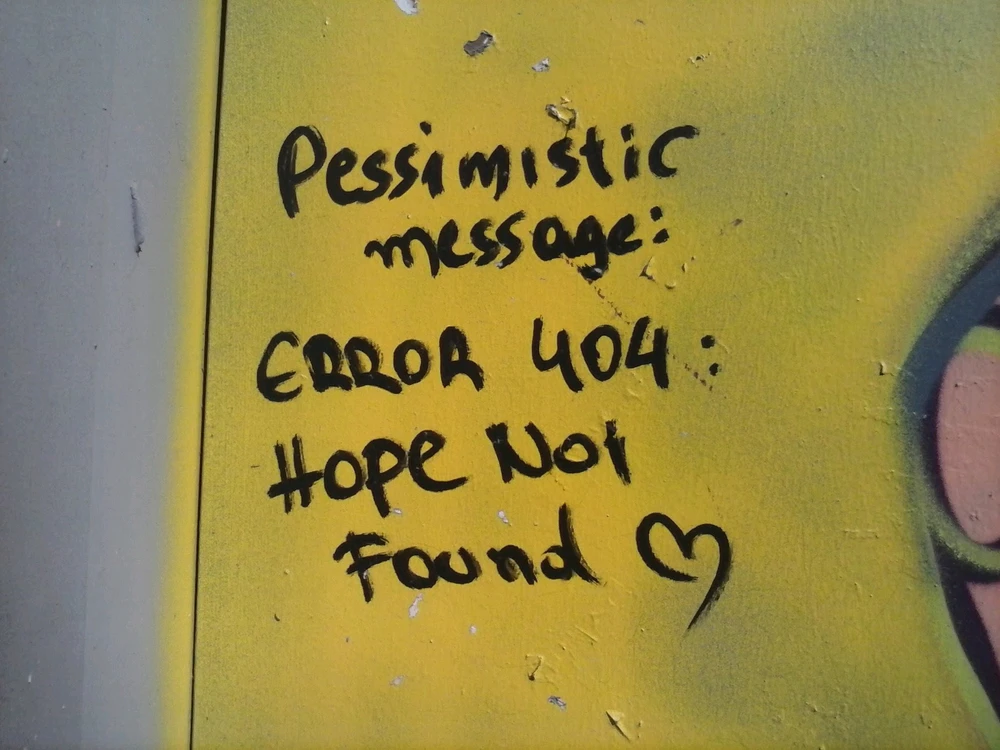 Pessimistic
message:
ERROR 404:
Hope Not
Found ♡